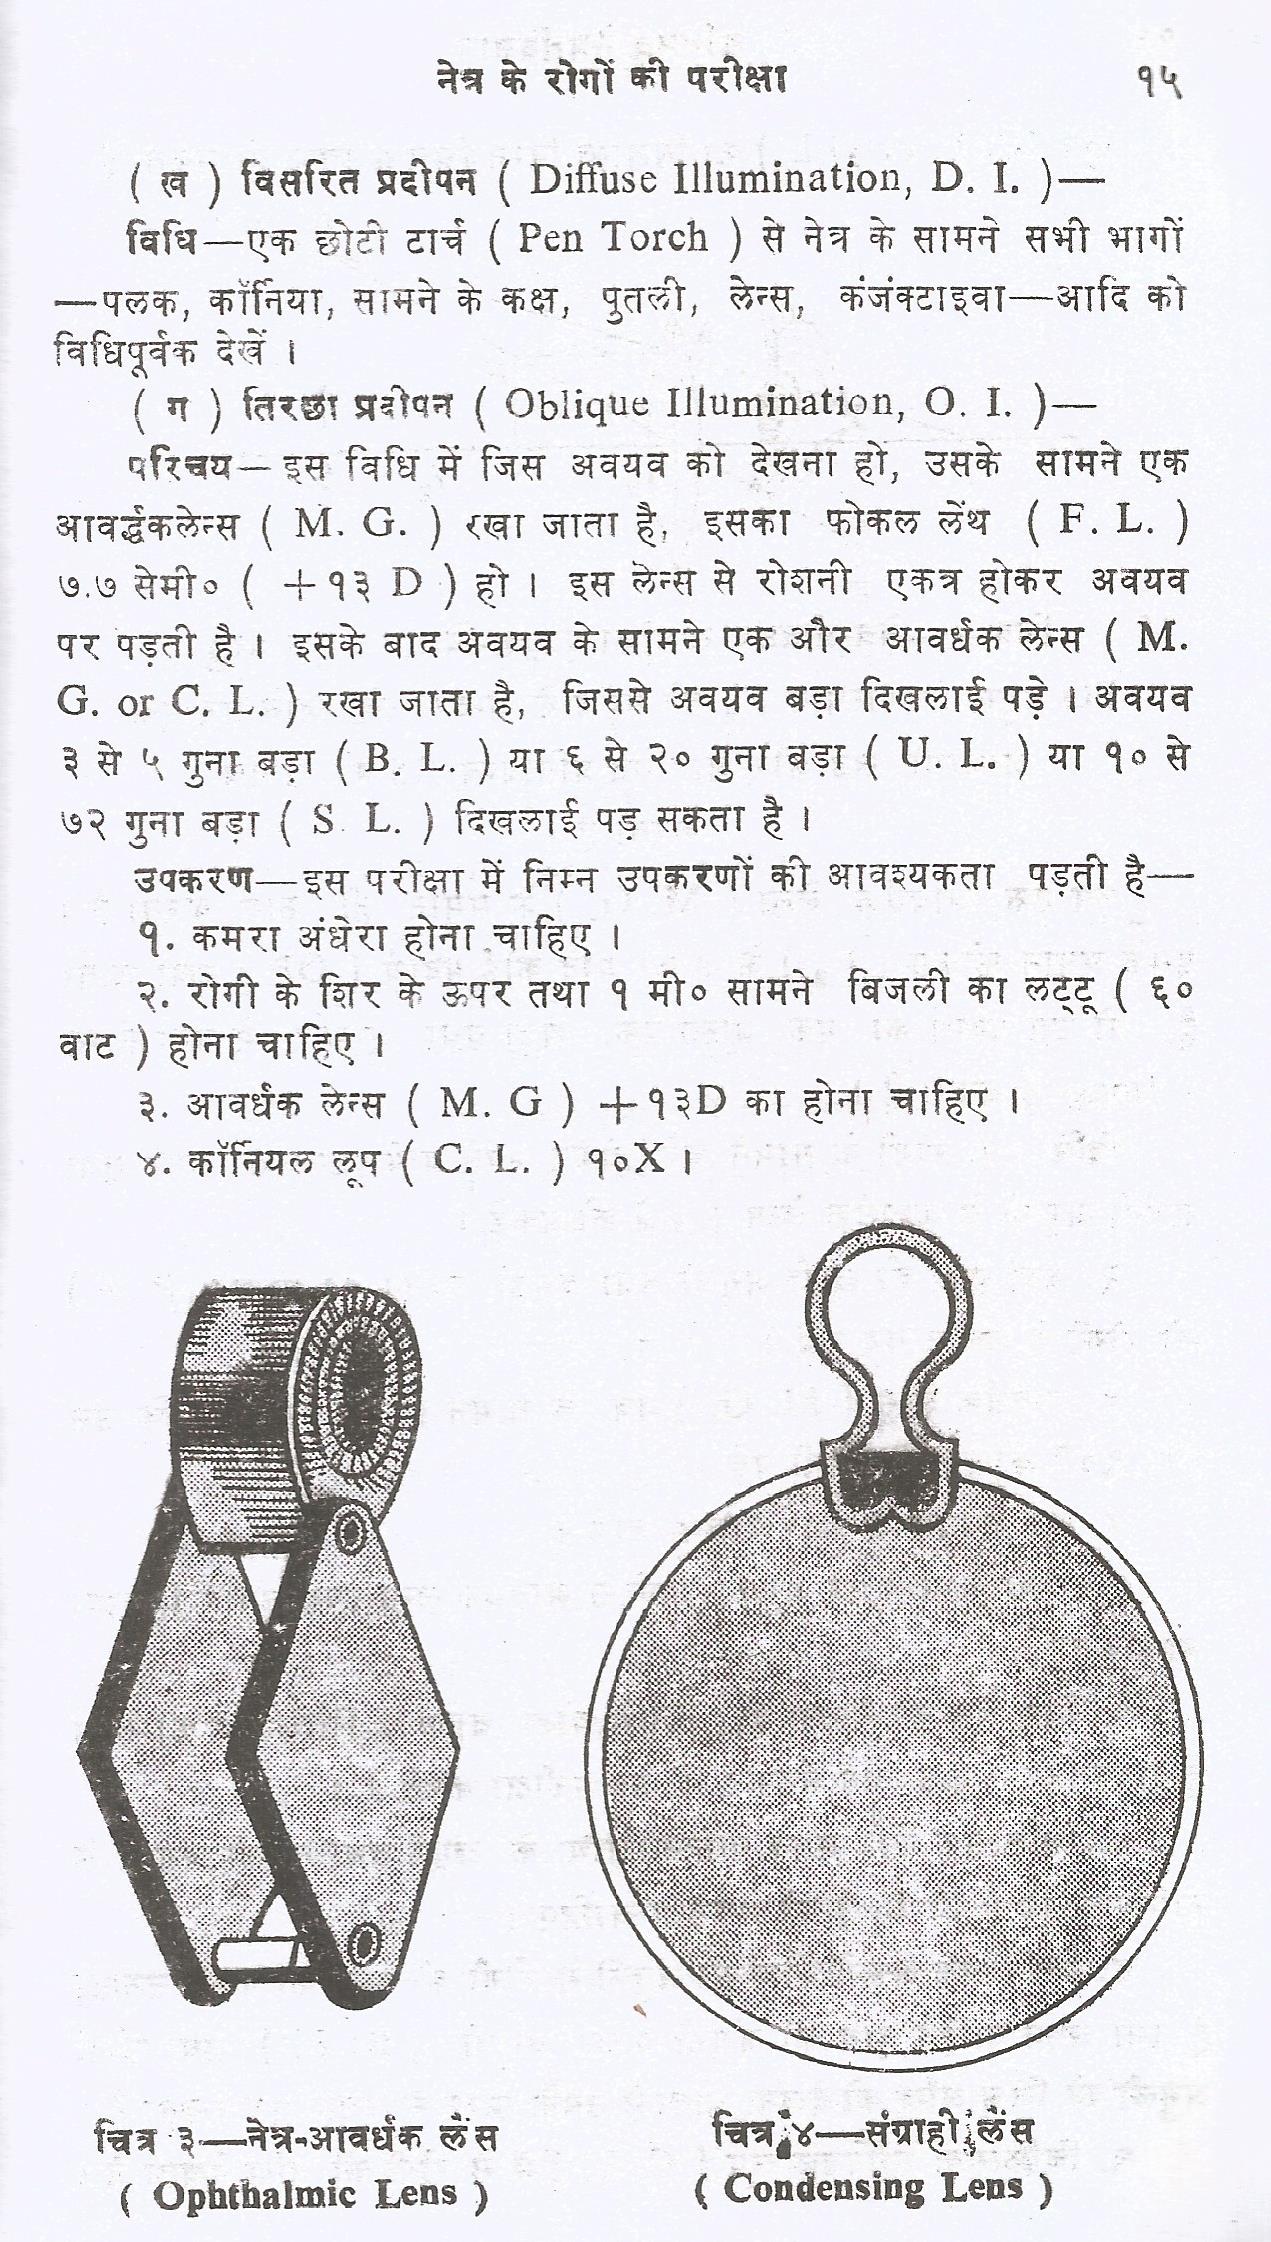 नेत्र के रोगों की परीक्षा १५
( ख ) विसरित प्रदीपन ( Diffuse Illumination, D. I. )—
विधि—एक छोटी टार्च ( Pen Torch ) से नेत्र के सामने सभी भागों
—पलक, कॉर्निया, सामने के कक्ष, पुतली, लेन्स, कंजंक्टाइवा—आदि को
विधिपूर्वक देखें ।
( ग ) तिरछा प्रदीपन ( Oblique Illumination, O. I. )—
परिचय—इस विधि में जिस अवयव को देखना हो, उसके सामने एक
आवर्द्धकलेन्स ( M. G. ) रखा जाता है, इसका फोकल लेंथ ( F. L. )
७.७ सेमी० ( +१३ D ) हो । इस लेन्स से रोशनी एकत्र होकर अवयव
पर पड़ती है । इसके बाद अवयव के सामने एक और आवर्धक लेन्स ( M.
G. or C. L. ) रखा जाता है, जिससे अवयव बड़ा दिखलाई पड़े । अवयव
३ से ५ गुना बड़ा ( B. L. ) या ६ से २० गुना बड़ा ( U. L. ) या १० से
७२ गुना बड़ा ( S L. ) दिखलाई पड़ सकता है ।
उपकरण—इस परीक्षा में निम्न उपकरणों की आवश्यकता पड़ती है—
१. कमरा अंधेरा होना चाहिए ।
२. रोगी के शिर के ऊपर तथा १ मी० सामने बिजली का लट्टू ( ६०
वाट ) होना चाहिए ।
३. आवर्धक लेन्स ( M. G ) +१३D का होना चाहिए ।
४. कॉर्नियल लूप ( C. L. ) १०X ।
चित्र ३—नेत्र-आवर्धक लैंस
( Ophthalmic Lens )
चित्र ४—संग्राही लैंस
( Condensing Lens )